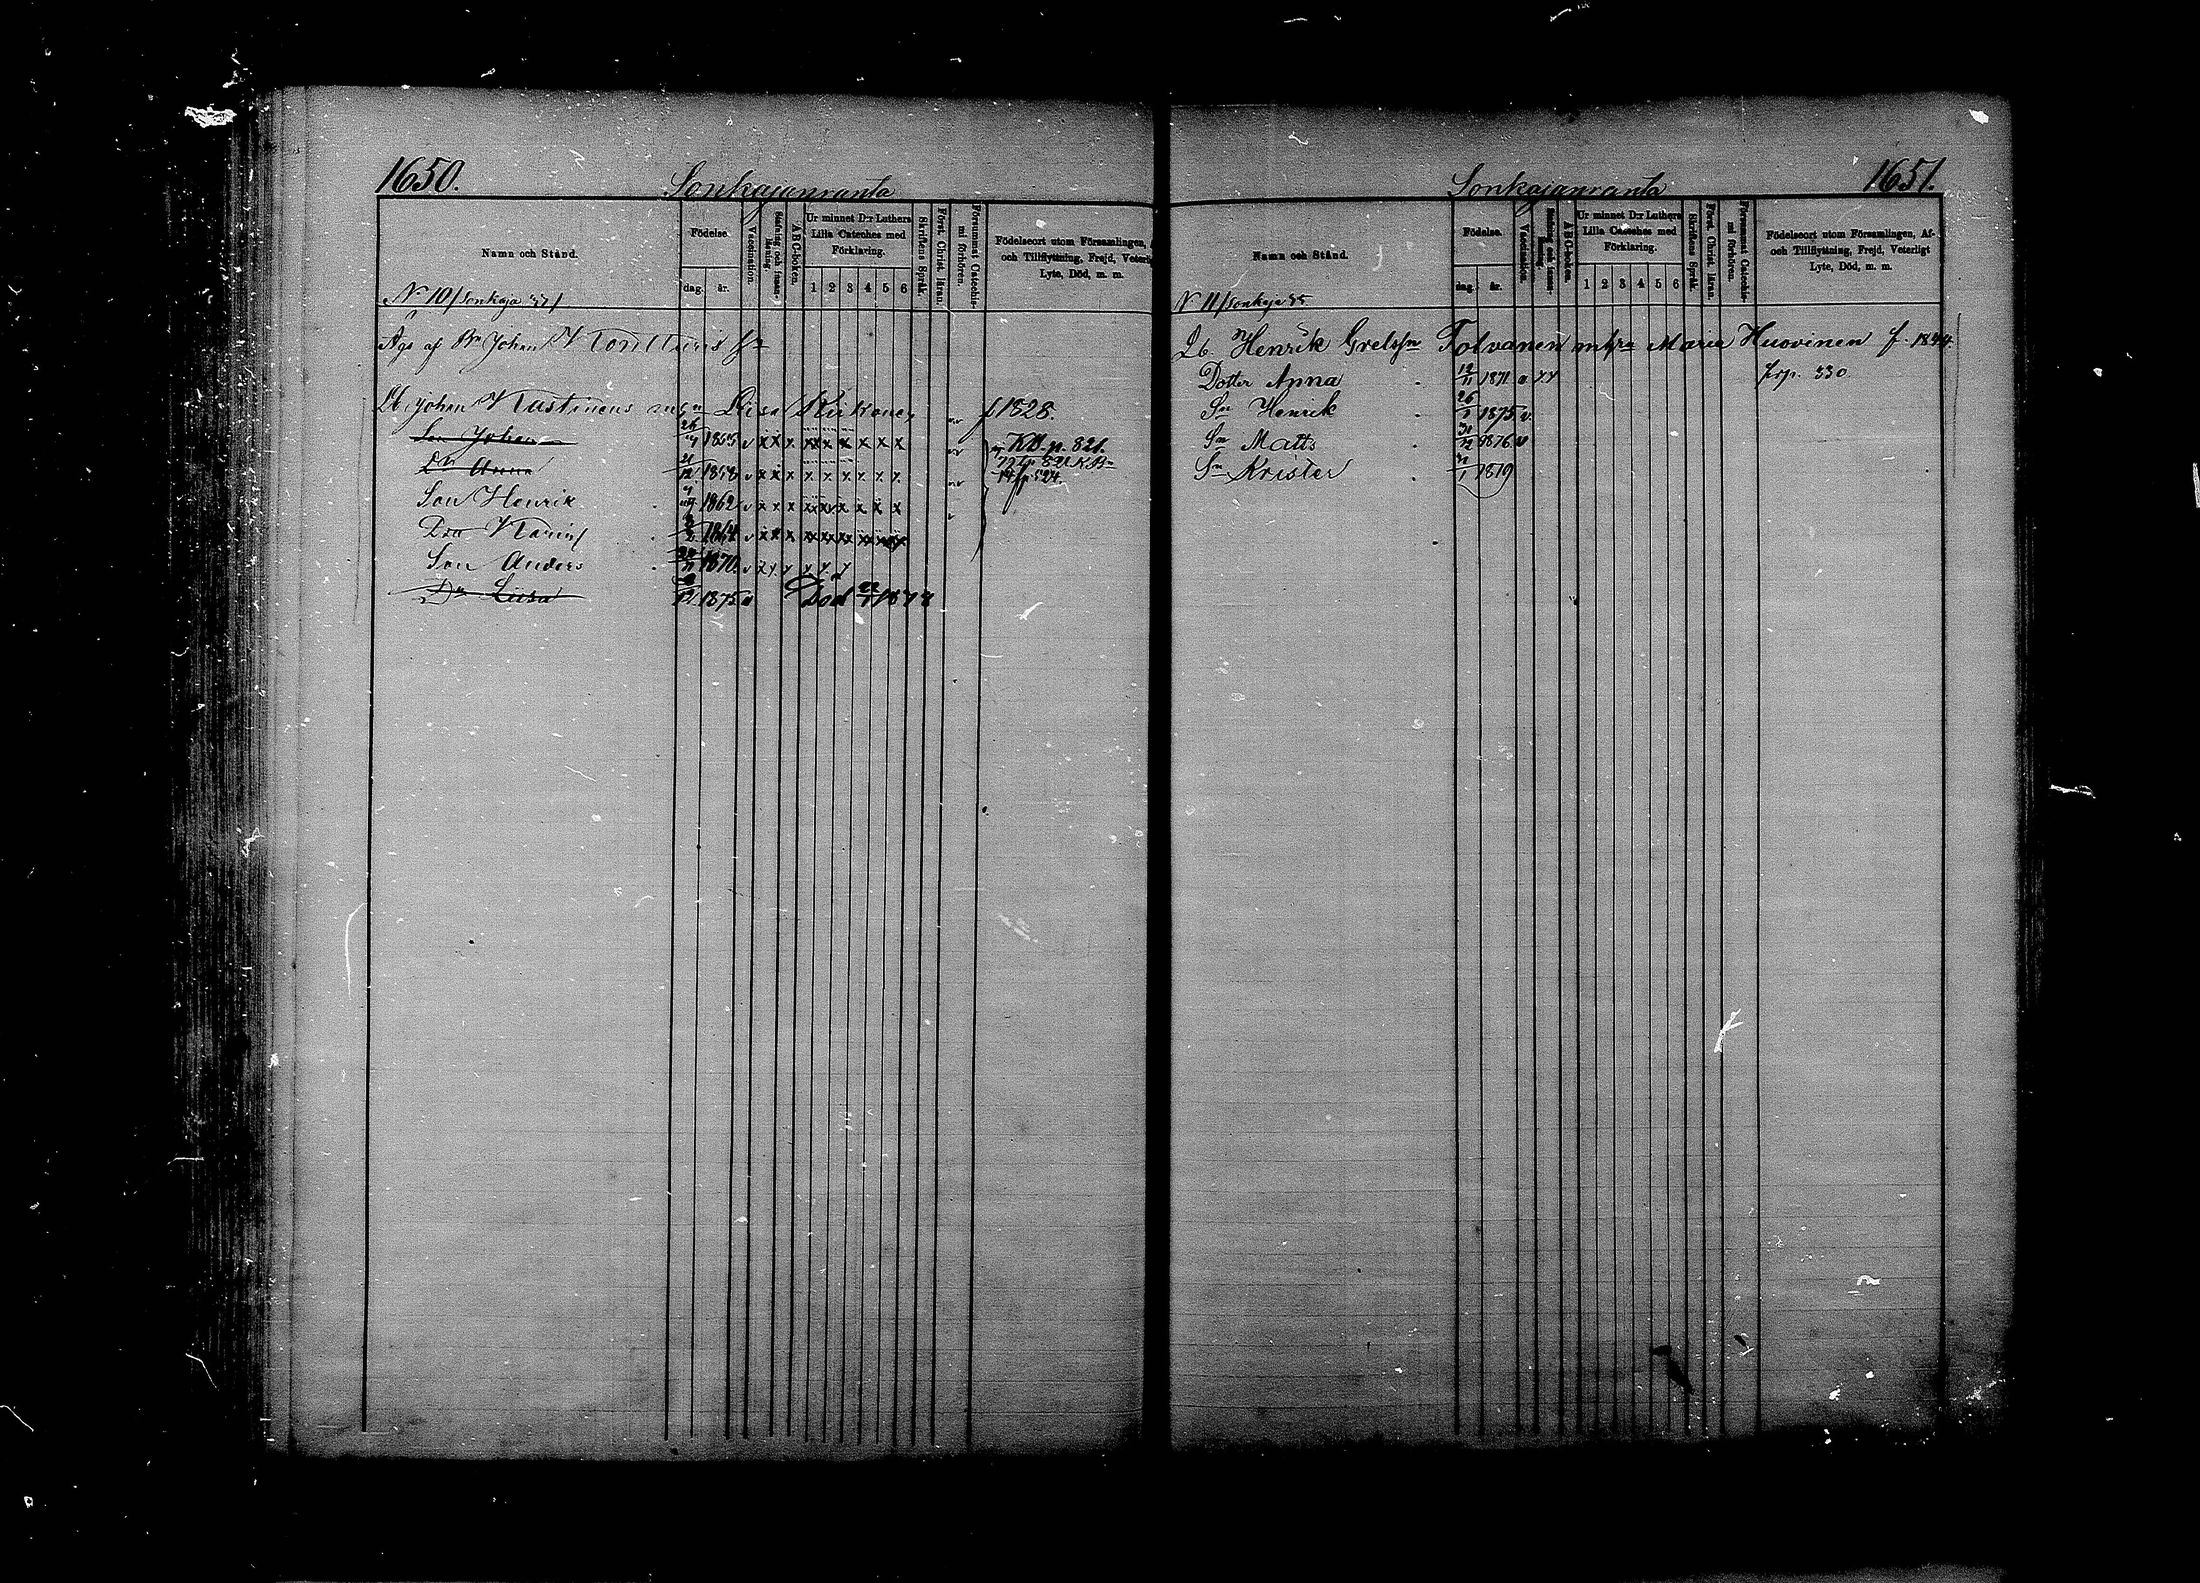 1650.
Sonkajanranta
Namn och Stånd.
Födelse.
dag. år.
Vaccination.
Stafning och innan-läsning.
A B C-boken.
Ur minnet D:r Luthers Lilla Cateches med Förklaring.
1 2 3 4 5 6
Skriftens Språk.
Först. Christ. läran.
Försummat Catechismi förhören.
Födelseort utom Församlingen, och Tillflyttning, Frejd, Veterligt Lyte, Död, m. m.
N 10 / Sonkaja 37 /
Äges af Bn Johan
Lb. Johan Kastinens Lisa f 1828.
Son Johan 1855 v x x x x x x x x x KB p. 821.
Dr Anna 1858 v x x x x x x x x x
Son Henrik 1862 v x x x x x x x x x
Dtr Karin 1864 v x x x xx xx xx xx xx xx
Son Anders 1870 v x y y y y y
Dr Lisa 12 1875 v Död
1651.
Sonkajanranta
Namn och Stånd.
Födelse.
dag. år.
Vaccination.
Stafning och innan-läsning.
A B C-boken.
Ur minnet D:r Luthers Lilla Cateches med Förklaring.
1 2 3 4 5 6
Skriftens Språk.
Först. Christ. läran.
Försummat Catechismi förhören.
Födelseort utom Församlingen, Af- och Tillflyttning, Frejd, Veterligt Lyte, Död, m. m.
N 11 / Sonkaja 35
Lb Henrik Grelsn Tolvanen m hra Maria Huovinen f. 1844.
Dotter Anna 12/11 1871 v x y frp. 330
Sn Henrik 26/1 1875 v.
Sn Matts 31/12 1876 v
Sn Krister 1879